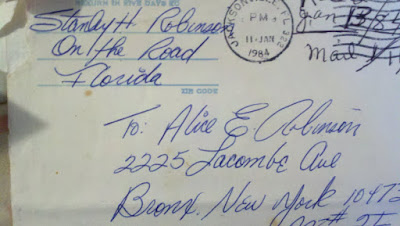 Stanley H Robinson
On the Road
Florida
ZIP CODE
JACKSONVILLE, FL 322
PM
11 JAN
1984
Mail
To: Alice E Robinson
2225 Lacombe Ave
Bronx, New York 10473